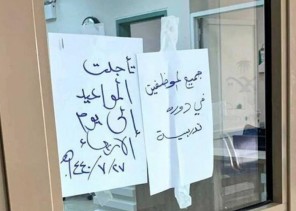 تأجلت
المواعيد
إلى يوم
الأربعاء
١٤٤٠/٧/٢٧هـ
جميع الموظفين
في دوره
تدريبية